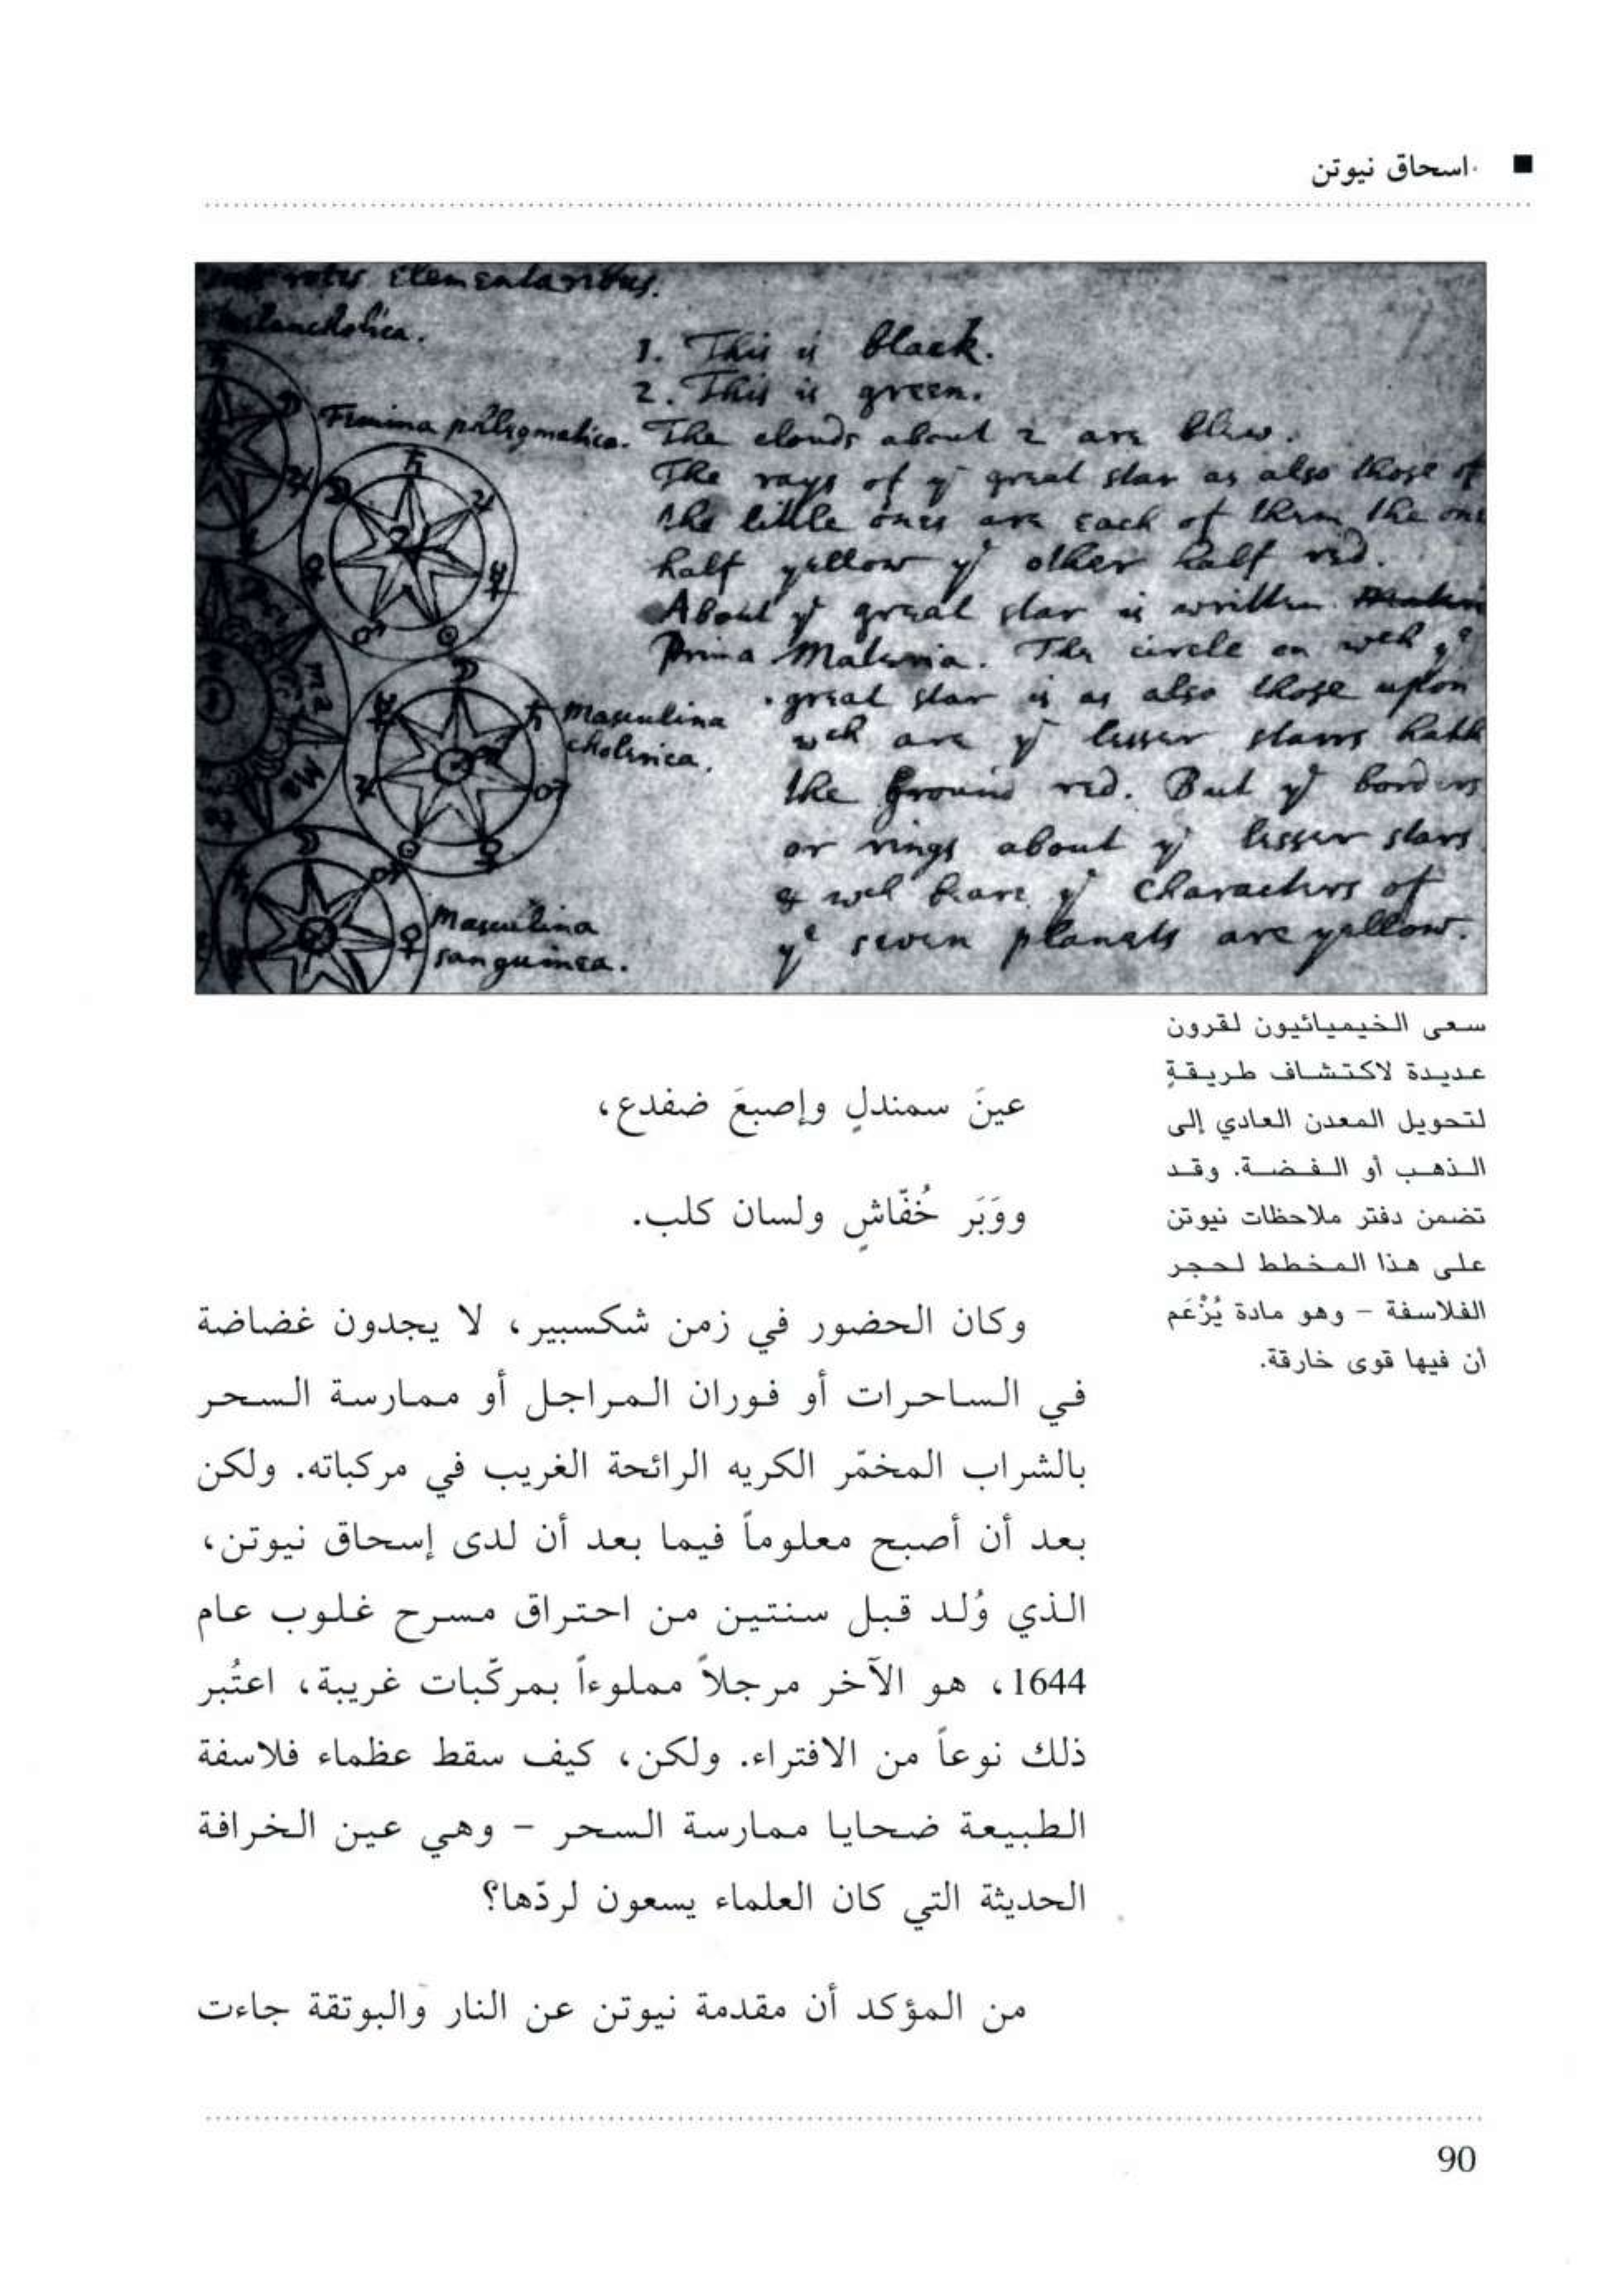 اسحاق نيوتن
Elementaribus.
1. This is black.
2. This is green.
Femina phlegmatica.
The clouds about 2 are blew.
The rays of ye great star as also those of
the little ones are each of them the one
half yellow ye other half red.
About ye great star is written
Prima Materia. The circle on wch ye
great star is as also those upon
wch are ye lesser starrs hath
the ground red. But ye borders
or rings about ye lesser stars
& wch beare ye characters of
ye seven planets are yellow.
Masculina
cholerica.
Masculina
sanguinea.
سعى الخيميائيون لقرون
عديدة لاكتشاف طريقةٍ
لتحويل المعدن العادي إلى
الذهب أو الفضة. وقد
تضمن دفتر ملاحظات نيوتن
على هذا المخطط لحجر
الفلاسفة – وهو مادة يُزْعَم
أن فيها قوى خارقة.
عينَ سمندلٍ وإصبعَ ضفدع،
ووَبَر خُفّاشٍ ولسان كلب.
وكان الحضور في زمن شكسبير، لا يجدون غضاضة
في الساحرات أو فوران المراجل أو ممارسة السحر
بالشراب المخمّر الكريه الرائحة الغريب في مركباته. ولكن
بعد أن أصبح معلوماً فيما بعد أن لدى إسحاق نيوتن،
الذي وُلد قبل سنتين من احتراق مسرح غلوب عام
1644، هو الآخر مرجلاً مملوءاً بمركّبات غريبة، اعتُبر
ذلك نوعاً من الافتراء. ولكن، كيف سقط عظماء فلاسفة
الطبيعة ضحايا ممارسة السحر – وهي عين الخرافة
الحديثة التي كان العلماء يسعون لردّها؟
من المؤكد أن مقدمة نيوتن عن النار والبوتقة جاءت
90